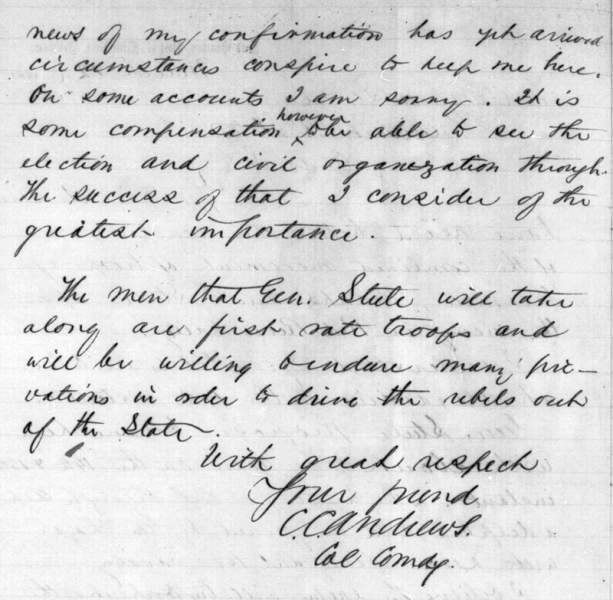 news of my confirmation has yet arrived
circumstances conspire to keep me here.
On some accounts I am sorry. It is
some compensation however to be able to see the
election and civil organization through.
The success of that I consider of the
greatest importance.
The men that Genl Steele will take
along are first rate troops and
will be willing to endure many pri-
vations in order to drive the rebels out
of the State.
With great respect
Your friend
C.C. Andrews.
Col Comdg.